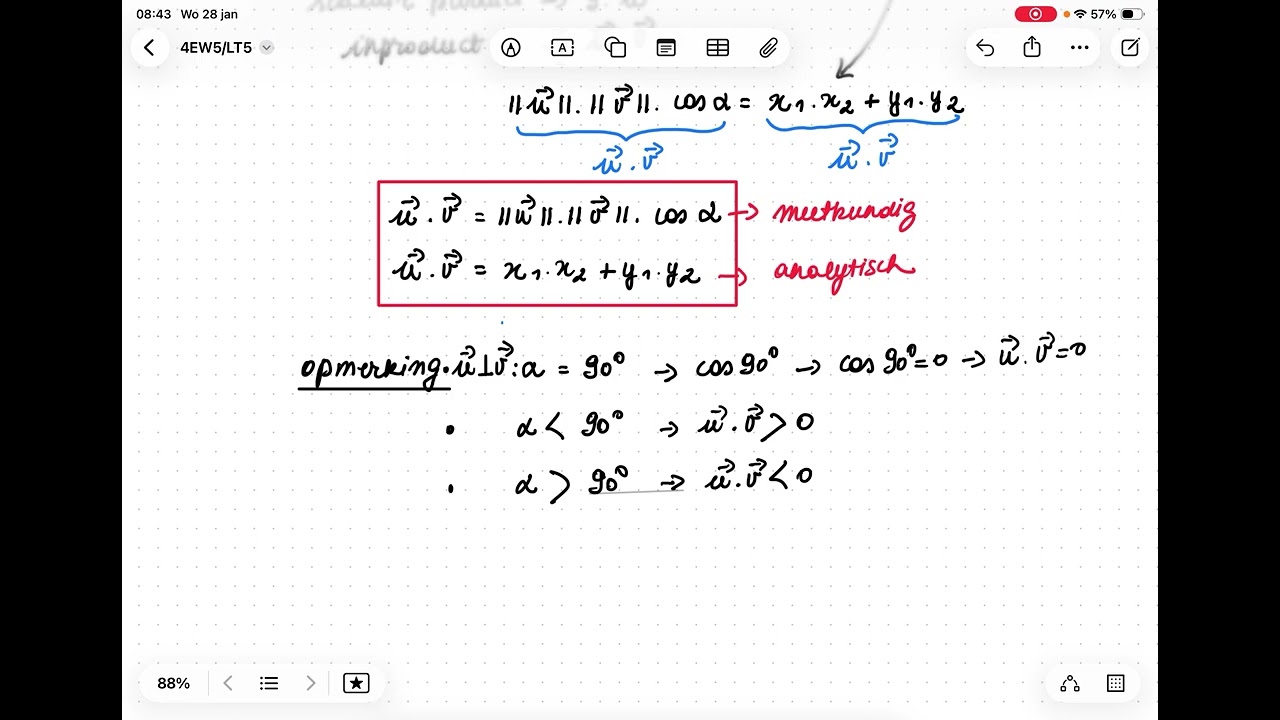 08:43 Wo 28 jan 57%
4EW5/LT5
inproduct
||u⃗||.||v⃗||. cos α = x₁.x₂ + y₁.y₂
u⃗.v⃗ u⃗.v⃗
u⃗.v⃗ = ||u⃗||.||v⃗||. cos α → meetkundig
u⃗.v⃗ = x₁.x₂ + y₁.y₂ → analytisch
opmerking. u⃗⊥v⃗: α = 90° → cos 90° → cos 90°=0 → u⃗.v⃗=0
• α < 90° → u⃗.v⃗ > 0
• α > 90° → u⃗.v⃗ < 0
88%